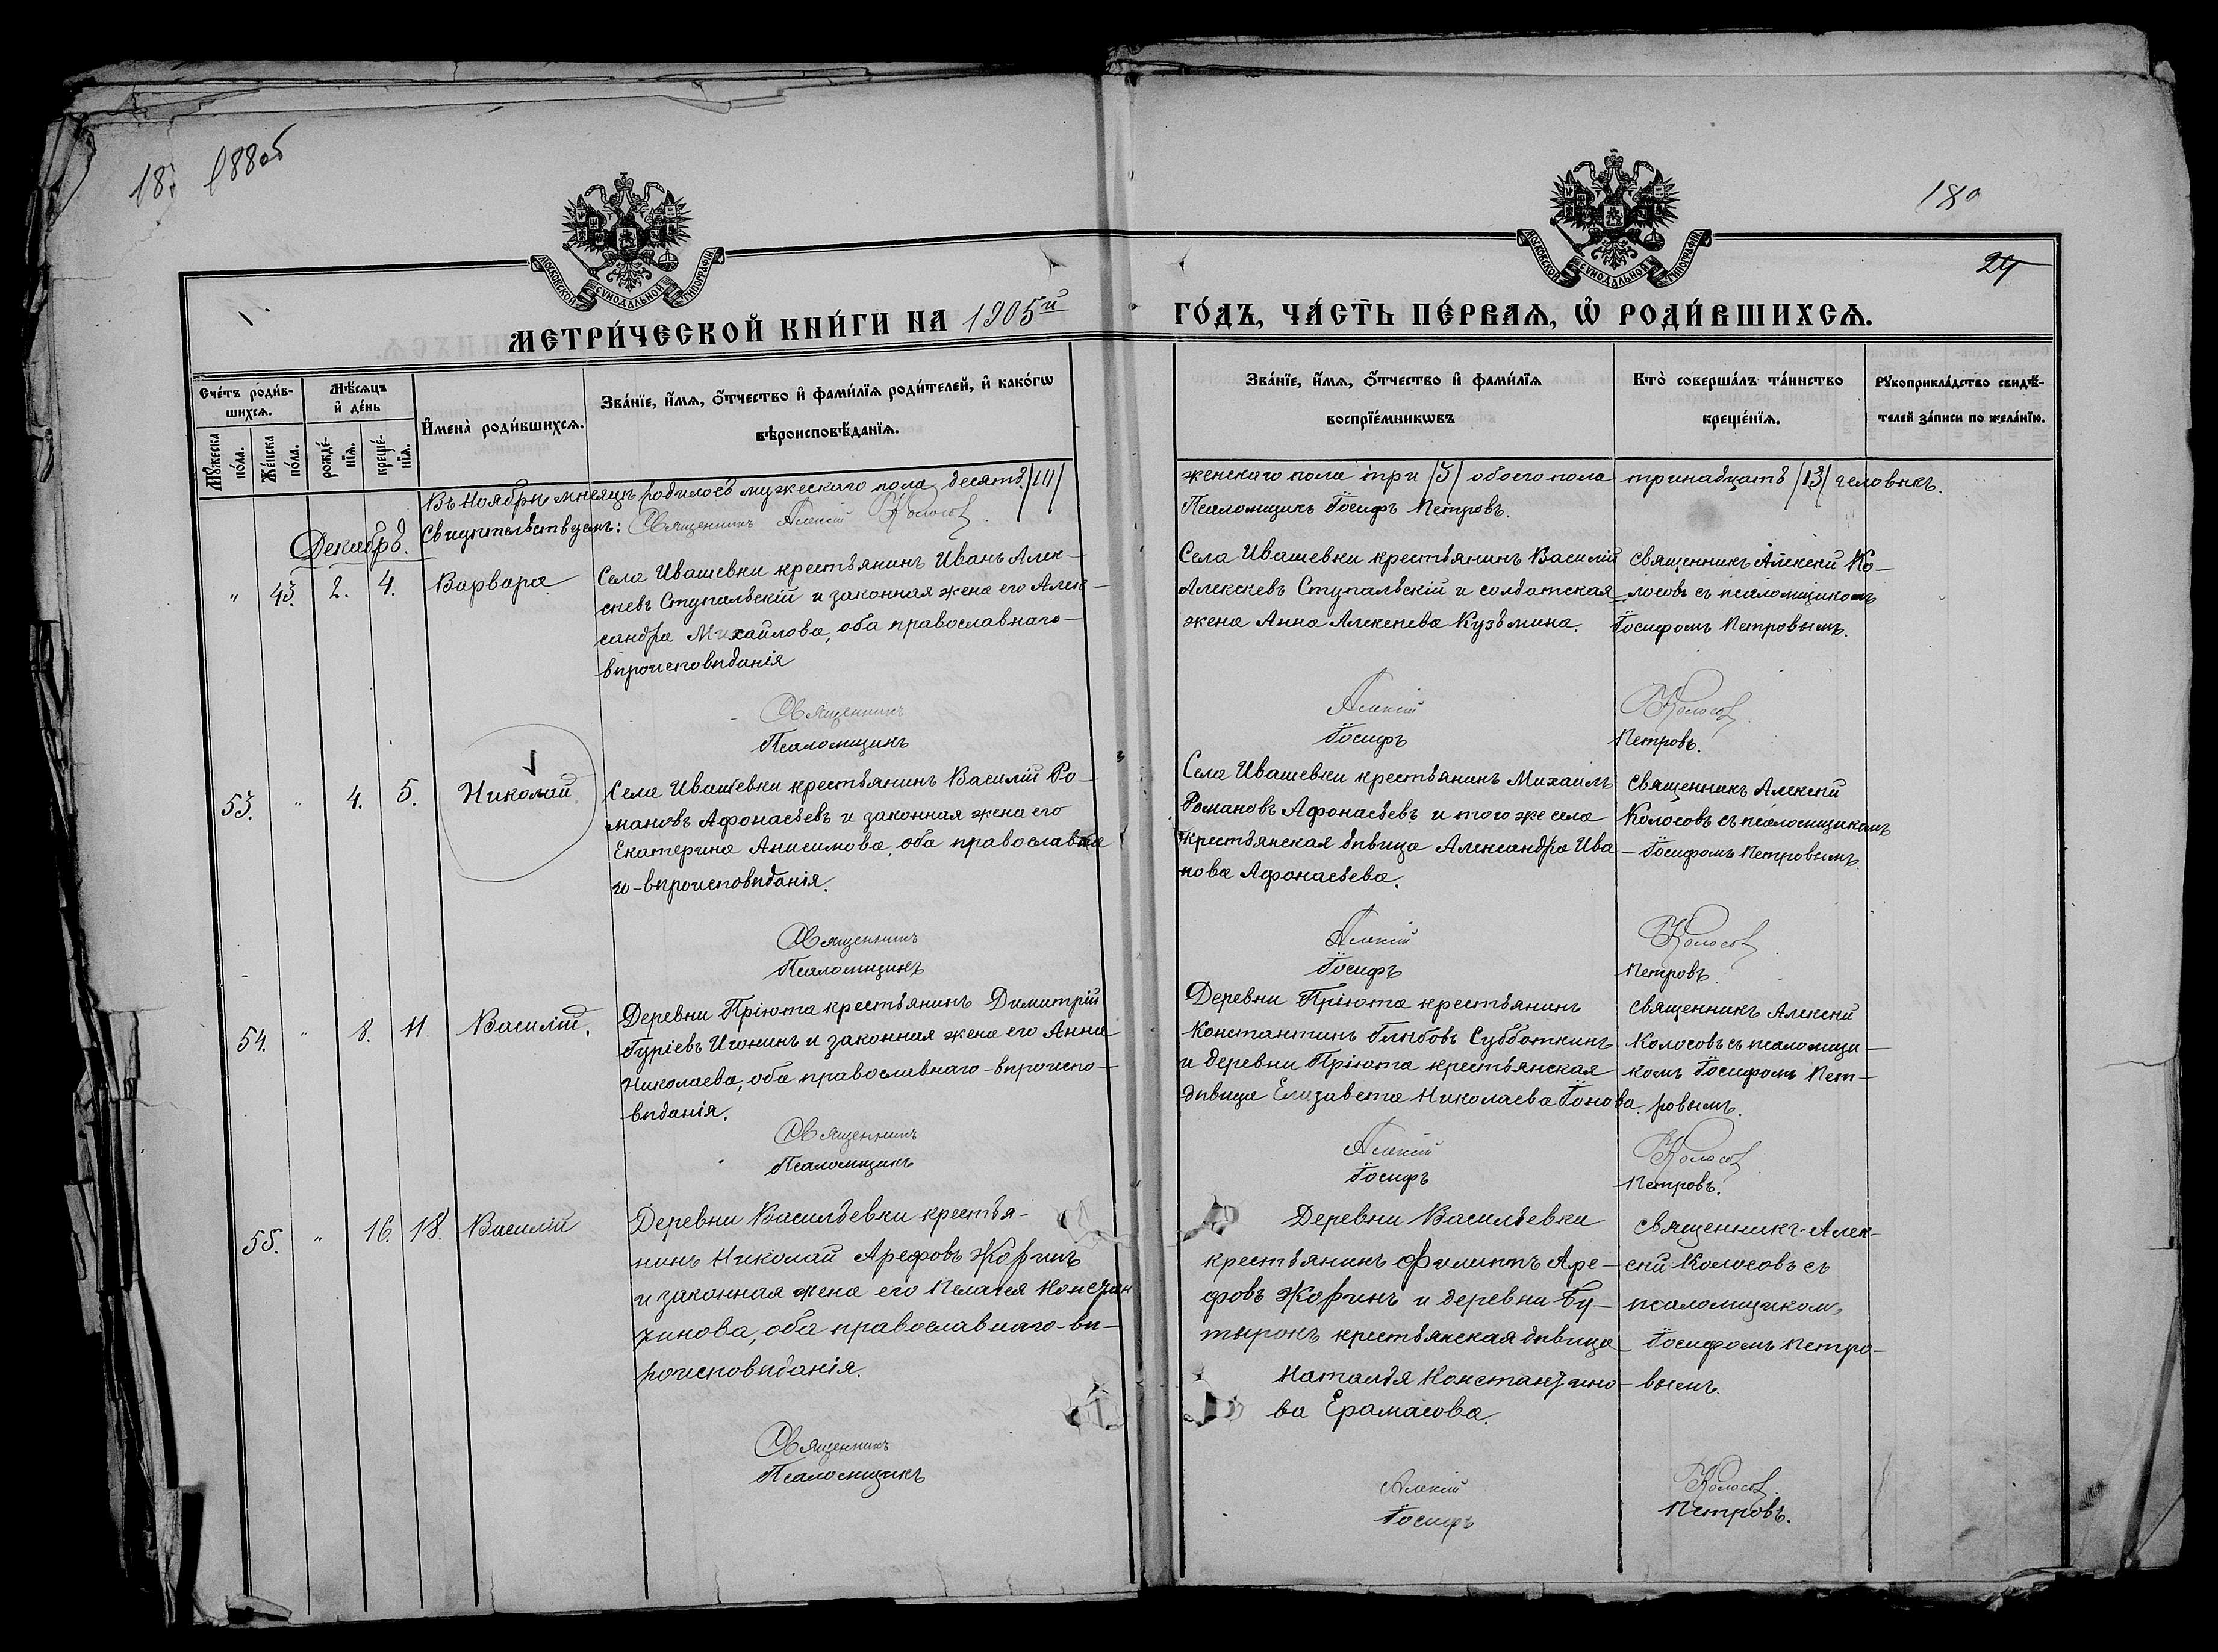 187 188об
180
29
МОСКОВСКОЙ СѴНОДАЛЬНОЙ ТИПОГРАФІИ
МОСКОВСКОЙ СѴНОДАЛЬНОЙ ТИПОГРАФІИ
МЕТРИ́ЧЕСКОЙ КНИ́ГИ НА 1905й
ГО́ДЪ, ЧА́СТЬ ПЕ́РВАѦ, Ѡ РОДИ́ВШИХСѦ.
Сче́тъ роди́в-
шихсѧ.
Мꙋ́жеска
по́ла.
Же́нска
по́ла.
Мѣ́сѧцъ
и҆ де́нь
рожде́-
нїѧ.
креще́-
нїѧ.
И҆мена̀ роди́вшихсѧ.
Зва́нїе, и҆́мѧ, ѻ҆́тчество и҆ фамилїѧ роди́телей, и҆ како́гѡ
вѣроисповѣ́данїѧ.
Зва́нїе, и҆́мѧ, ѻ҆́тчество и҆ фамилїѧ
воспрїе́мникѡвъ
Кто̀ соверша́лъ та́инство
креще́нїѧ.
Рꙋкоприкла́дство свидѣ́-
телей за́писи по жела́нїю.
Въ Ноябрѣ мѣсяцѣ родилось мужескаго пола десять /10/
женскаго пола три /3/ обоего пола тринадцать /13/ человѣкъ.
Свидѣтельствуемъ: Священникъ Алексій Колосов
Псаломщикъ Іосифъ Петровъ.
Декабрь.
" 43. 2. 4. Варвара
Села Ивашевки крестьянинъ Иванъ Алек-
сѣевъ Ступальскій и законная жена его Алек-
сандра Михайлова, оба православнаго-
вѣроисповѣданія
Села Ивашевки крестьянинъ Василій
Алексѣевъ Ступальскій и солдатская
жена Анна Алексѣева Кузьмина.
Священникъ Алексѣй Ко-
лосовъ съ псаломщикомъ
Іосифомъ Петровымъ.
Священникъ Алексій Колосов
Псаломщикъ Іосифъ Петровъ.
53. " 4. 5. Николай
Села Ивашевки крестьянинъ Василій Ро-
мановъ Афонасьевъ и законная жена его
Екатерина Анисимова, оба православна
го-вѣроисповѣданія.
Села Ивашевки крестьянинъ Михаилъ
Романовъ Афонасьевъ и того же села
крестьянская дѣвица Александра Ива-
нова Афонасьева.
Священникъ Алексѣй
Колосовъ съ псаломщикомъ
Іосифомъ Петровымъ
Священникъ Алексій Колосов
Псаломщикъ Іосифъ Петровъ
54. " 8. 11. Василій.
Деревни Пріюта крестьянинъ Димитрій
Гуріевъ Игонинъ и законная жена его Анна
Николаева, оба православнаго-вѣроиспо-
вѣданія.
Деревни Пріюта крестьянинъ
Константинъ Глѣбовъ Субботкинъ
и деревни Пріюта крестьянская
дѣвица Елизавета Николаева Іонова.
Священникъ Алексѣй
Колосовъ съ псаломщи-
комъ Іосифомъ Пет-
ровымъ.
Священникъ Алексій Колосов
Псаломщикъ Іосифъ Петровъ.
55. " 16. 18. Василій
Деревни Васильевки крестья-
нинъ Николай Арефовъ Жоринъ
и законная жена его Пелагея Констан
тинова, оба православнаго-вѣ-
роисповѣданія.
Деревни Васильевки
крестьянинъ Филиппъ Аре-
фовъ Жоринъ и деревни Бу-
тырокъ крестьянская дѣвица
Наталья Константино-
ва Ерамасова.
Священникъ-Алек-
сѣй Колосовъ съ
псаломщикомъ
Іосифомъ Петро-
вымъ.
Священникъ Алексій Колосов.
Псаломщикъ Іосифъ Петровъ.